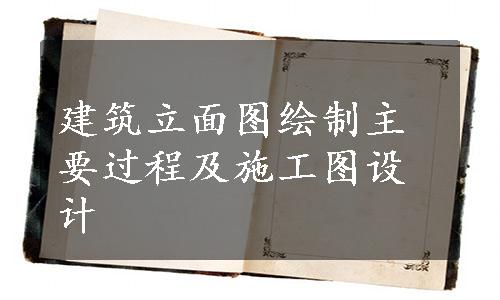 建筑立面图绘制主
要过程及施工图设
计